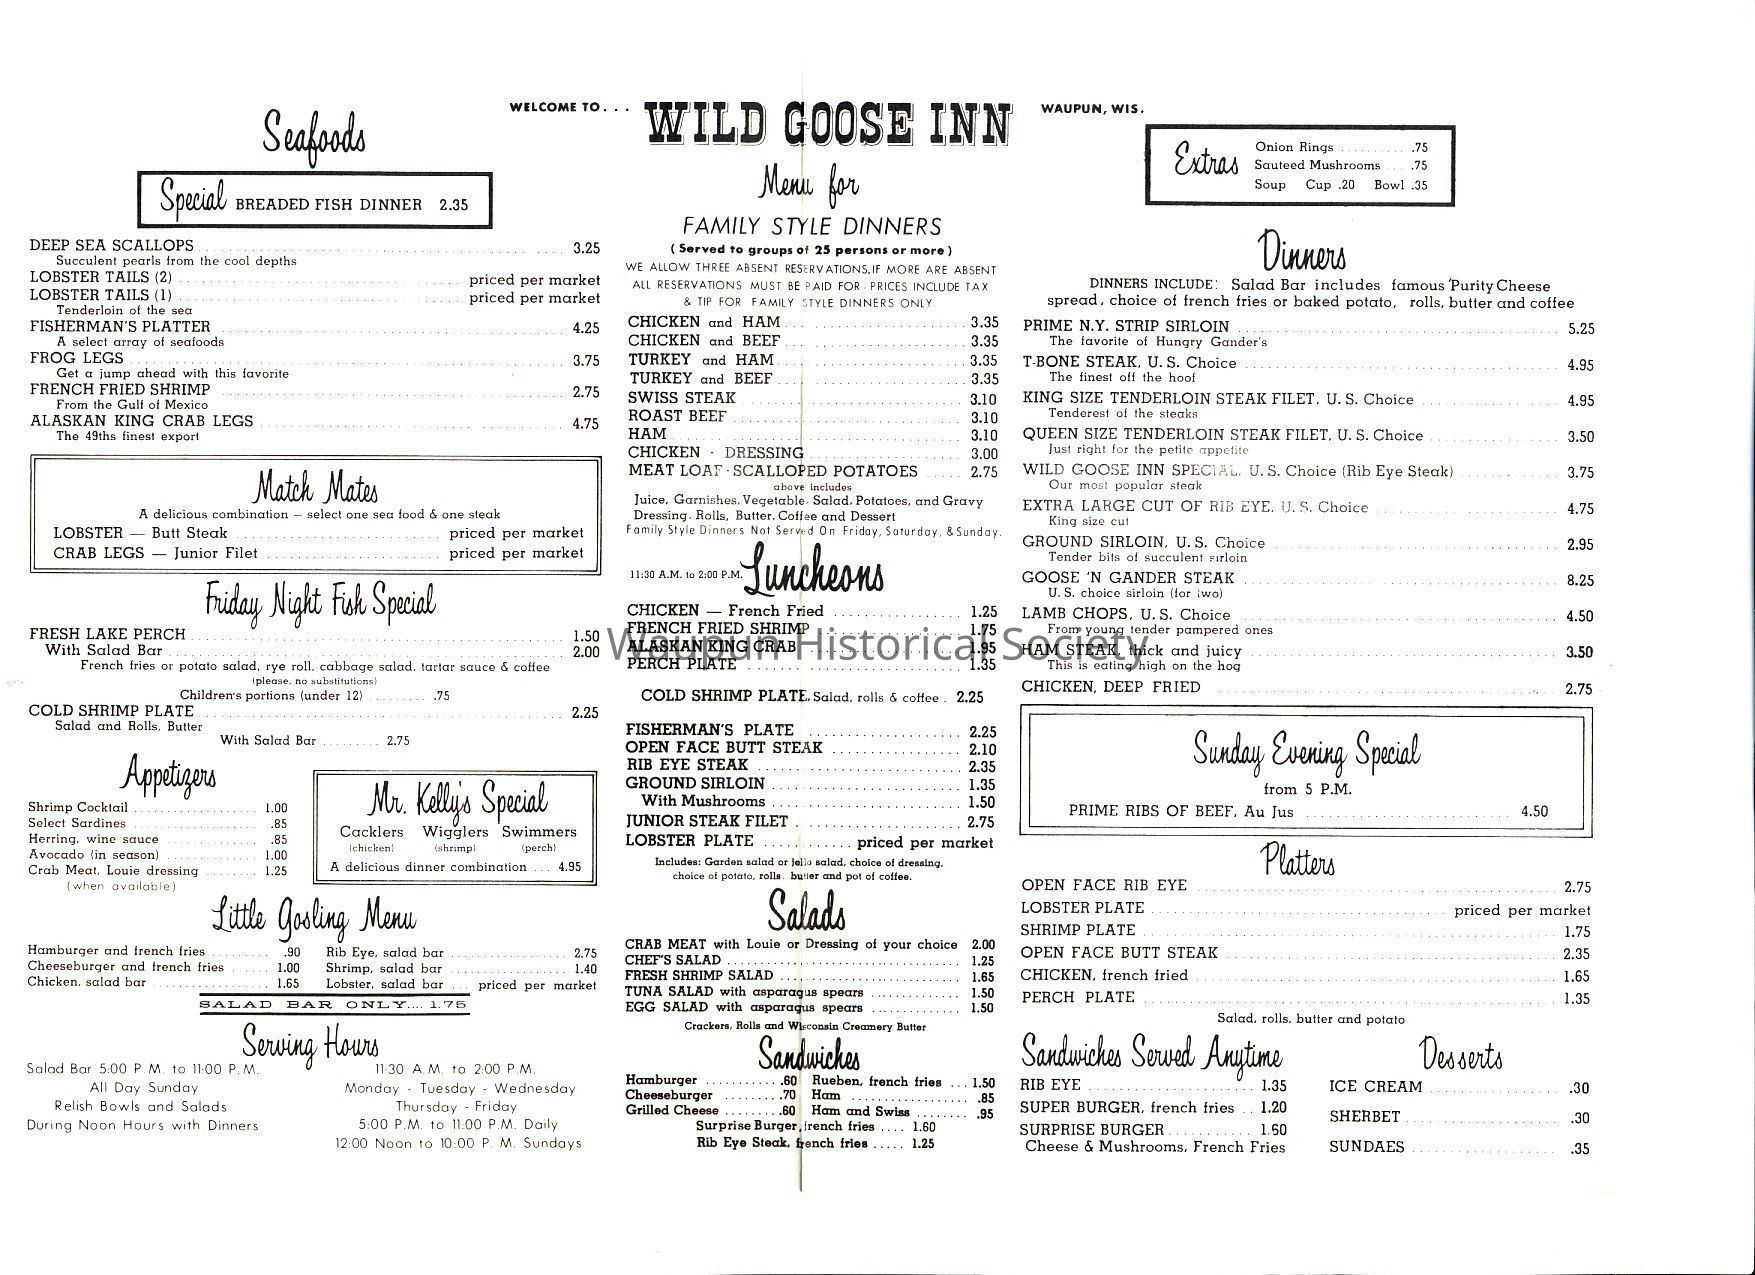 WELCOME TO. . . WILD GOOSE INN WAUPUN, WIS.
Seafoods
Special BREADED FISH DINNER 2.35
DEEP SEA SCALLOPS 3.25
Succulent pearls from the cool depths
LOBSTER TAILS (2) priced per market
LOBSTER TAILS (1) priced per market
Tenderloin of the sea
FISHERMAN'S PLATTER 4.25
A select array of seafoods
FROG LEGS 3.75
Get a jump ahead with this favorite
FRENCH FRIED SHRIMP 2.75
From the Gulf of Mexico
ALASKAN KING CRAB LEGS 4.75
The 49ths finest export
Match Mates
A delicious combination — select one sea food & one steak
LOBSTER — Butt Steak priced per market
CRAB LEGS — Junior Filet priced per market
Friday Night Fish Special
FRESH LAKE PERCH 1.50
With Salad Bar 2.00
French fries or potato salad, rye roll, cabbage salad, tartar sauce & coffee
(please, no substitutions)
Children's portions (under 12) .75
COLD SHRIMP PLATE 2.25
Salad and Rolls, Butter
With Salad Bar 2.75
Appetizers
Shrimp Cocktail 1.00
Select Sardines .85
Herring, wine sauce .85
Avocado (in season) 1.00
Crab Meat, Louie dressing 1.25
(when available)
Mr. Kelly's Special
Cacklers Wigglers Swimmers
(chicken) (shrimp) (perch)
A delicious dinner combination . . . 4.95
Little Gosling Menu
Hamburger and french fries .90
Cheeseburger and french fries 1.00
Chicken, salad bar 1.65
Rib Eye, salad bar 2.75
Shrimp, salad bar 1.40
Lobster, salad bar . . . priced per market
SALAD BAR ONLY.... 1.75
Serving Hours
Salad Bar 5:00 P.M. to 11:00 P.M.
All Day Sunday
Relish Bowls and Salads
During Noon Hours with Dinners
11:30 A.M. to 2:00 P.M.
Monday - Tuesday - Wednesday
Thursday - Friday
5:00 P.M. to 11:00 P.M. Daily
12:00 Noon to 10:00 P.M. Sundays
Menu for
FAMILY STYLE DINNERS
(Served to groups of 25 persons or more)
WE ALLOW THREE ABSENT RESERVATIONS, IF MORE ARE ABSENT
ALL RESERVATIONS MUST BE PAID FOR - PRICES INCLUDE TAX
& TIP FOR FAMILY STYLE DINNERS ONLY
CHICKEN and HAM 3.35
CHICKEN and BEEF 3.35
TURKEY and HAM 3.35
TURKEY and BEEF 3.35
SWISS STEAK 3.10
ROAST BEEF 3.10
HAM 3.10
CHICKEN - DRESSING 3.00
MEAT LOAF - SCALLOPED POTATOES 2.75
above includes
Juice, Garnishes, Vegetable, Salad, Potatoes, and Gravy
Dressing, Rolls, Butter, Coffee and Dessert
Family Style Dinners Not Served On Friday, Saturday, & Sunday.
11:30 A.M. to 2:00 P.M. Luncheons
CHICKEN — French Fried 1.25
FRENCH FRIED SHRIMP 1.75
ALASKAN KING CRAB 1.95
PERCH PLATE 1.35
COLD SHRIMP PLATE, Salad, rolls & coffee . 2.25
FISHERMAN'S PLATE 2.25
OPEN FACE BUTT STEAK 2.10
RIB EYE STEAK 2.35
GROUND SIRLOIN 1.35
With Mushrooms 1.50
JUNIOR STEAK FILET 2.75
LOBSTER PLATE priced per market
Includes: Garden salad or jello salad, choice of dressing,
choice of potato, rolls, butter and pot of coffee.
Salads
CRAB MEAT with Louie or Dressing of your choice 2.00
CHEF'S SALAD 1.25
FRESH SHRIMP SALAD 1.65
TUNA SALAD with asparagus spears 1.50
EGG SALAD with asparagus spears 1.50
Crackers, Rolls and Wisconsin Creamery Butter
Sandwiches
Hamburger .60 Rueben, french fries ... 1.50
Cheeseburger .70 Ham .85
Grilled Cheese .60 Ham and Swiss .95
Surprise Burger, french fries .... 1.60
Rib Eye Steak, french fries ..... 1.25
Extras
Onion Rings .75
Sauteed Mushrooms .75
Soup Cup .20 Bowl .35
Dinners
DINNERS INCLUDE: Salad Bar includes famous 'Purity Cheese
spread, choice of french fries or baked potato, rolls, butter and coffee
PRIME N.Y. STRIP SIRLOIN 5.25
The favorite of Hungry Gander's
T-BONE STEAK, U.S. Choice 4.95
The finest off the hoof
KING SIZE TENDERLOIN STEAK FILET, U.S. Choice 4.95
Tenderest of the steaks
QUEEN SIZE TENDERLOIN STEAK FILET, U.S. Choice 3.50
Just right for the petite appetite
WILD GOOSE INN SPECIAL, U.S. Choice (Rib Eye Steak) 3.75
Our most popular steak
EXTRA LARGE CUT OF RIB EYE, U.S. Choice 4.75
King size cut
GROUND SIRLOIN, U.S. Choice 2.95
Tender bits of succulent sirloin
GOOSE 'N GANDER STEAK 8.25
U.S. choice sirloin (for two)
LAMB CHOPS, U.S. Choice 4.50
From young tender pampered ones
HAM STEAK, thick and juicy 3.50
This is eating high on the hog
CHICKEN, DEEP FRIED 2.75
Sunday Evening Special
from 5 P.M.
PRIME RIBS OF BEEF, Au Jus 4.50
Platters
OPEN FACE RIB EYE 2.75
LOBSTER PLATE priced per market
SHRIMP PLATE 1.75
OPEN FACE BUTT STEAK 2.35
CHICKEN, french fried 1.65
PERCH PLATE 1.35
Salad, rolls, butter and potato
Sandwiches Served Anytime
RIB EYE 1.35
SUPER BURGER, french fries .. 1.20
SURPRISE BURGER 1.60
Cheese & Mushrooms, French Fries
Desserts
ICE CREAM .30
SHERBET .30
SUNDAES .35
Waupun Historical Society